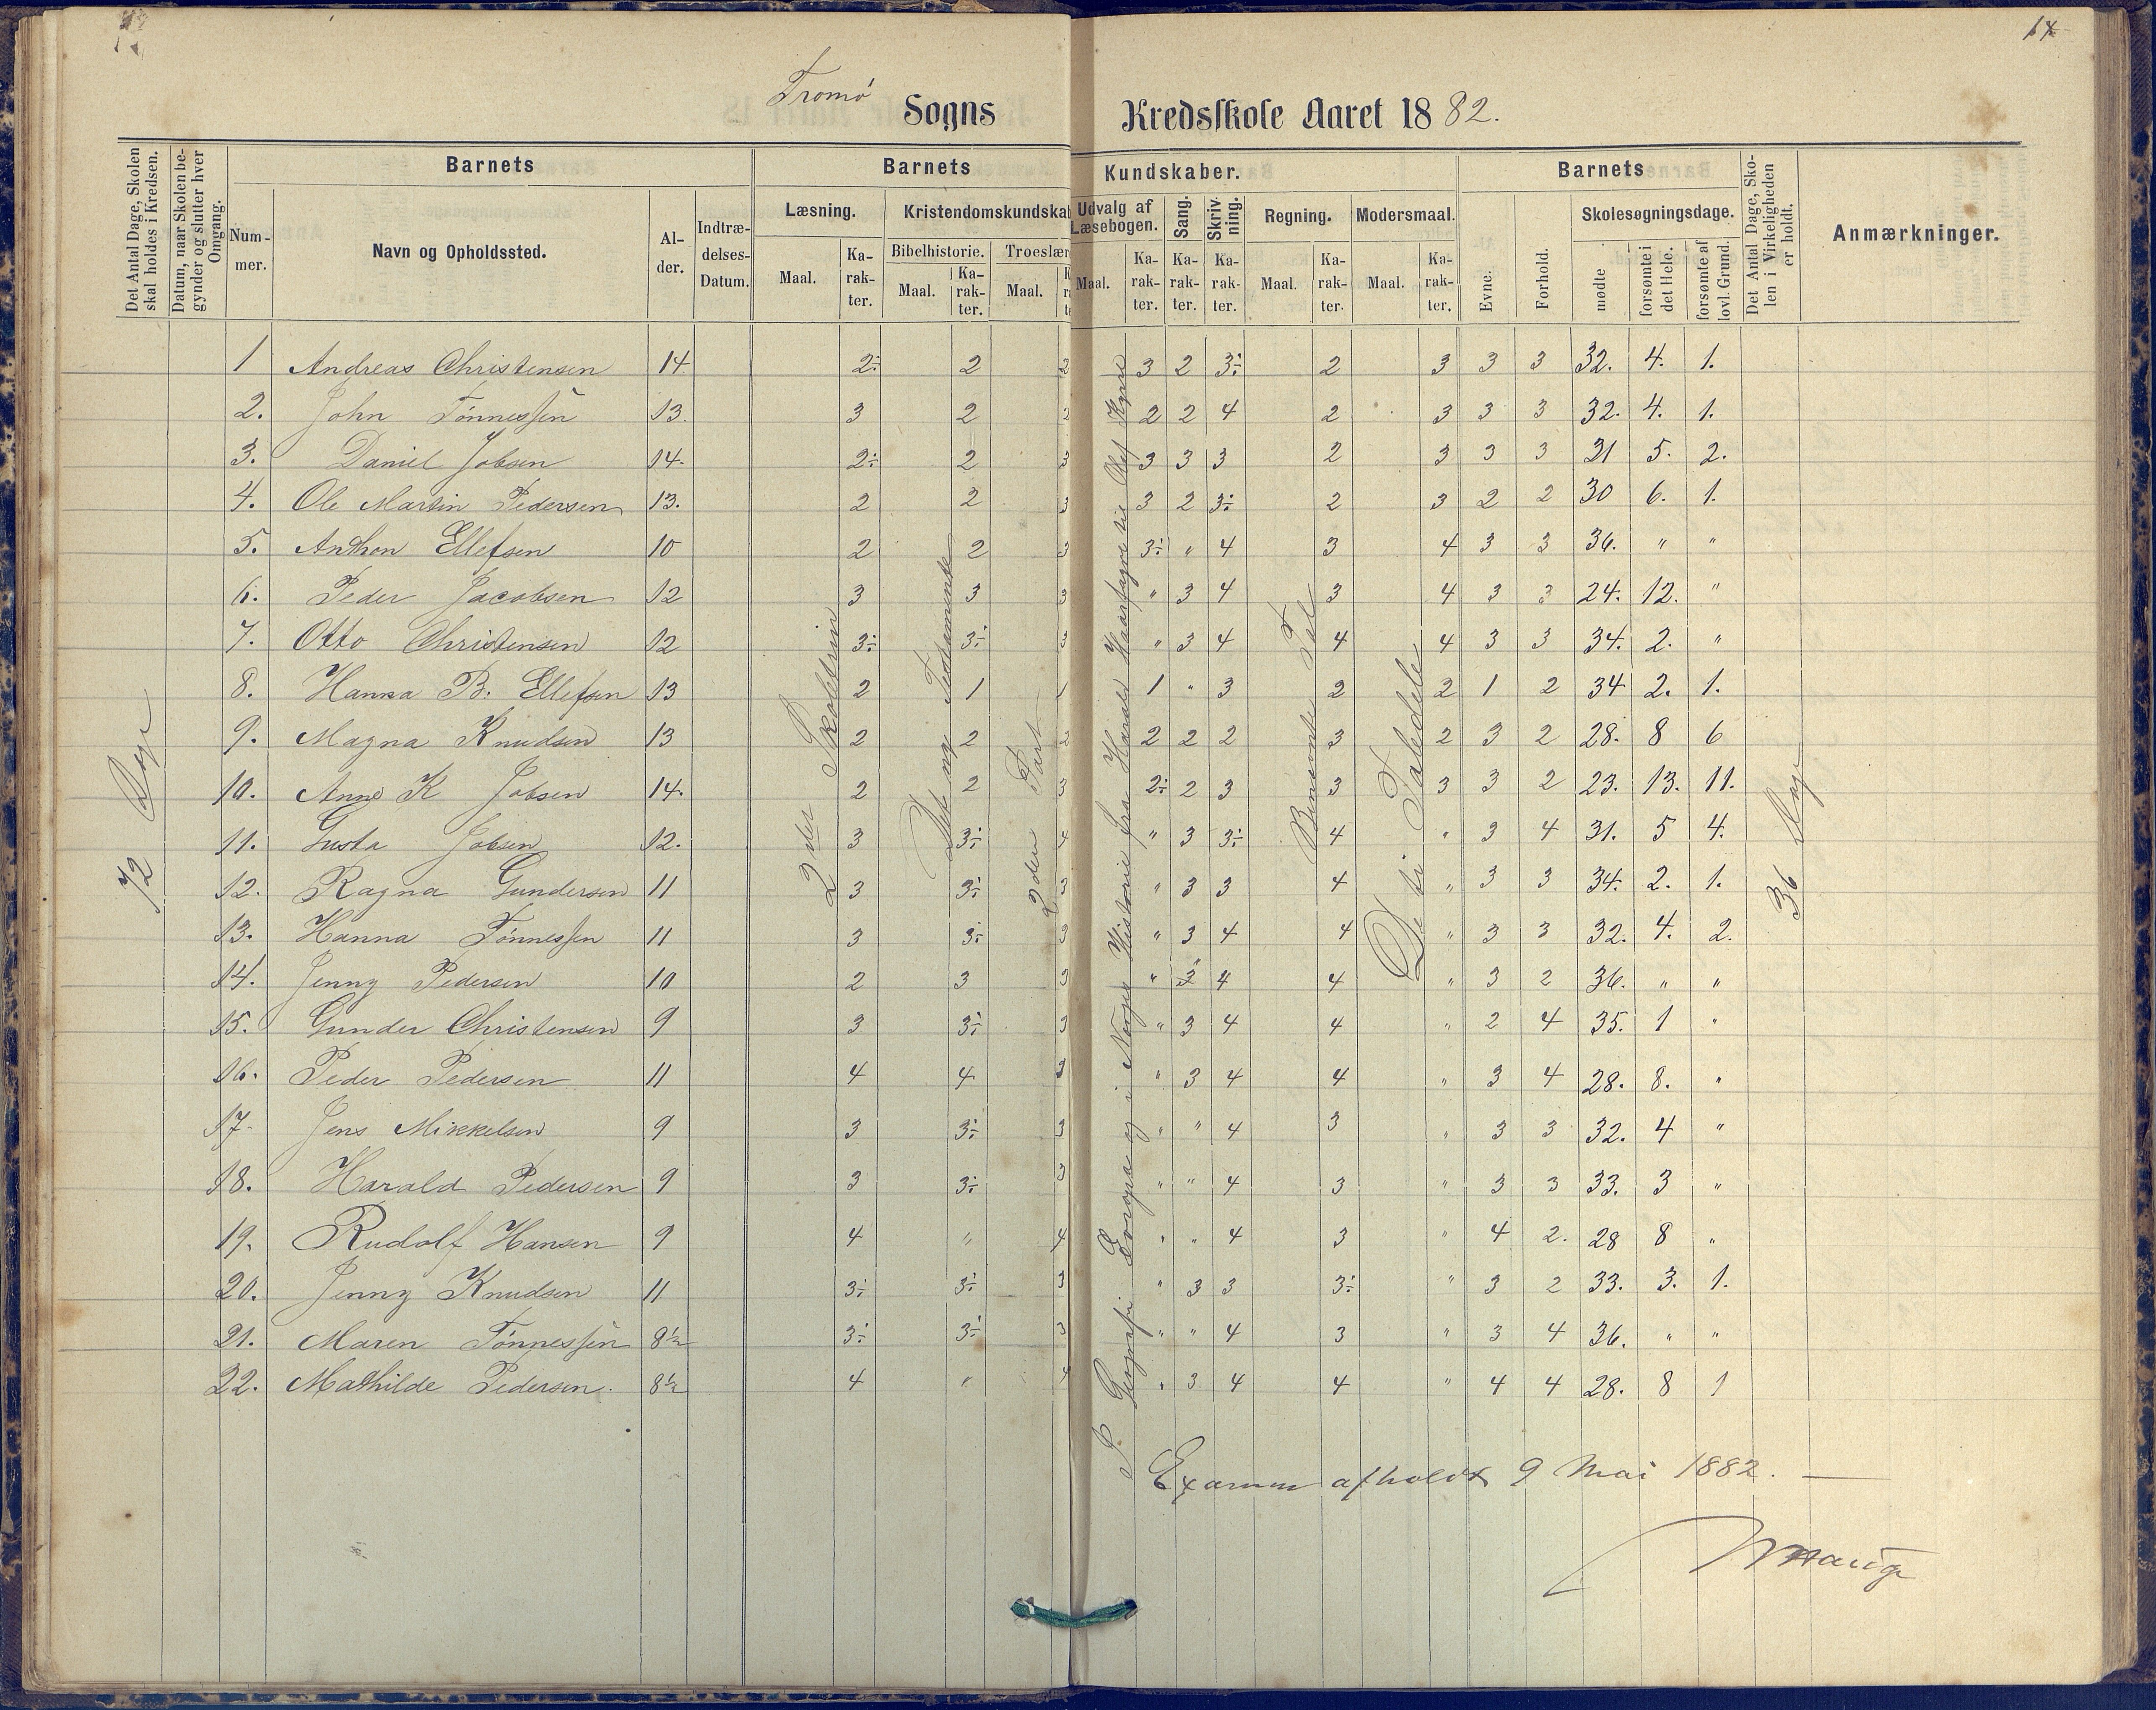 14
Tromø Sogns Kredsskole Aaret 1882.
Det Antal Dage, Skolen skal holdes i Kredsen.
Datum, naar Skolen begynder og slutter hver Omgang.
Barnets
Nummer.
Navn og Opholdssted.
Alder.
Indtrædelses-Datum.
Barnets Kundskaber.
Læsning.
Maal.
Karakter.
Kristendomskundskab
Bibelhistorie.
Maal.
Karakter.
Troeslær
Maal.
Udvalg af Læsebogen.
Maal.
Karakter.
Sang.
Karakter.
Skrivning.
Karakter.
Regning.
Maal.
Karakter.
Modersmaal.
Maal.
Karakter.
Barnets
Evne.
Forhold.
Skolesøgningsdage.
mødte
forsømte i det Hele.
forsømte af lovl. Grund.
Det Antal Dage, Skolen i Virkeligheden er holdt.
Anmærkninger.
1 Andreas Christensen 14 2÷ 2 2 3 2 3÷ 2 3 3 3 32. 4. 1.
2. John Tønnessen 13. 3 2 2 2 2 4 2 3 3 3 32. 4. 1.
3. Daniel Jobsen 14. 2÷ 2 3 3 3 3 2 3 3 3 31 5. 2.
4. Ole Martin Pedersen 13. 2 2 3 3 2 3÷ 2 3 2 2 30 6. 1.
5. Anthon Ellefsen 10 2 2 3 3÷ " 4 3 4 3 3 36. " "
6. Peder Jacobsen 12 3 3 3 " 3 4 3 4 3 3 24. 12. "
7. Otto Christensen 12 3÷ 3÷ 3 " 3 4 4 4 3 3 34. 2. "
8. Hanna B. Ellefsen 13 2 1 1 1 " 3 2 2 1 2 34 2. 1.
9. Magna Knudsen 13 2 2 2 2 2 2 3 2 3 2 28. 8 6
10. Anne K Jobsen 14. 2 2 3 2÷ 2 3 3 3 3 2 23. 13. 11.
11. Gusta Jobsen 12. 3 3÷ 4 " 3 3÷ 4 " 3 4 31. 5 4.
12. Ragna Gundersen 11 3 3÷ 3 " 3 3 4 " 3 3 34. 2. 1.
13. Hanna Tønnessen 11 3 3÷ 3 " 3 4 4 " 3 3 32. 4. 2.
14. Jenny Pedersen 10 2 3 3 " 3 4 4 " 3 2 36. " "
15. Gunder Christensen 9 3 3÷ 3 " 3 4 4 " 2 4 35. 1 "
16. Peder Pedersen 11 4 4 3 " 3 4 4 " 3 4 28. 8. "
17. Jens Mikkelsen 9 3 3÷ 3 " " 4 3 " 3 3 32. 4 "
18. Harald Pedersen 9 3 3÷ 3 " " 4 3 " 3 3 33. 3 "
19. Rudolf Hansen 9 4 " 4 " " 4 3 " 4 2. 28 8 "
20. Jenny Knudsen 11 3÷ 3÷ 3 " 3 3 3÷ " 3 2 33. 3. 1.
21. Maren Tønnessen 8½ 3÷ 3÷ 3 " " 4 3 " 3 4 36. " "
22. Mathilde Pedersen. 8½ 4 " 4 " 3 4 4 " 4 4 28. 8 1
72 Dage
2 det Skoletrin
Det nye Testamente
2 den Part
I Geografi Europa og i Norges Historie fra Harald Haarfagre til Olaf Kyrre
Benævnte Tal
De ti Taledele
36 Dage
Examen afholdt 9 Mai 1882.